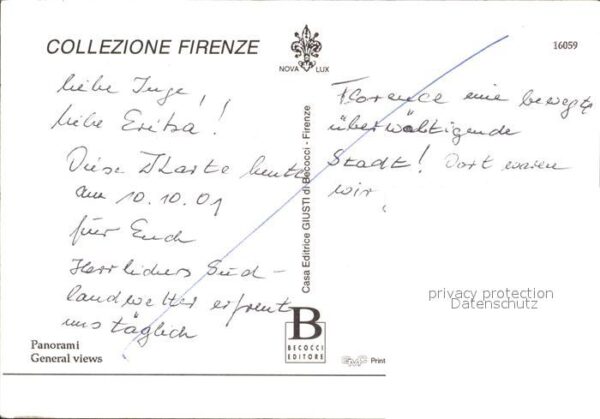 COLLEZIONE FIRENZE
NOVA LUX
16059
liebe Inge,
liebe Erika!
Diese Karte heute
am 10.10.01
für Euch
Herrliches Süd-
landwetter erfreut
uns täglich
Florence eine bewegte
überwältigende
Stadt! Dort waren
wir
Casa Editrice GIUSTI di Becocci - Firenze
privacy protection
Datenschutz
Panorami
General views
B
BECOCCI
EDITORE
Print